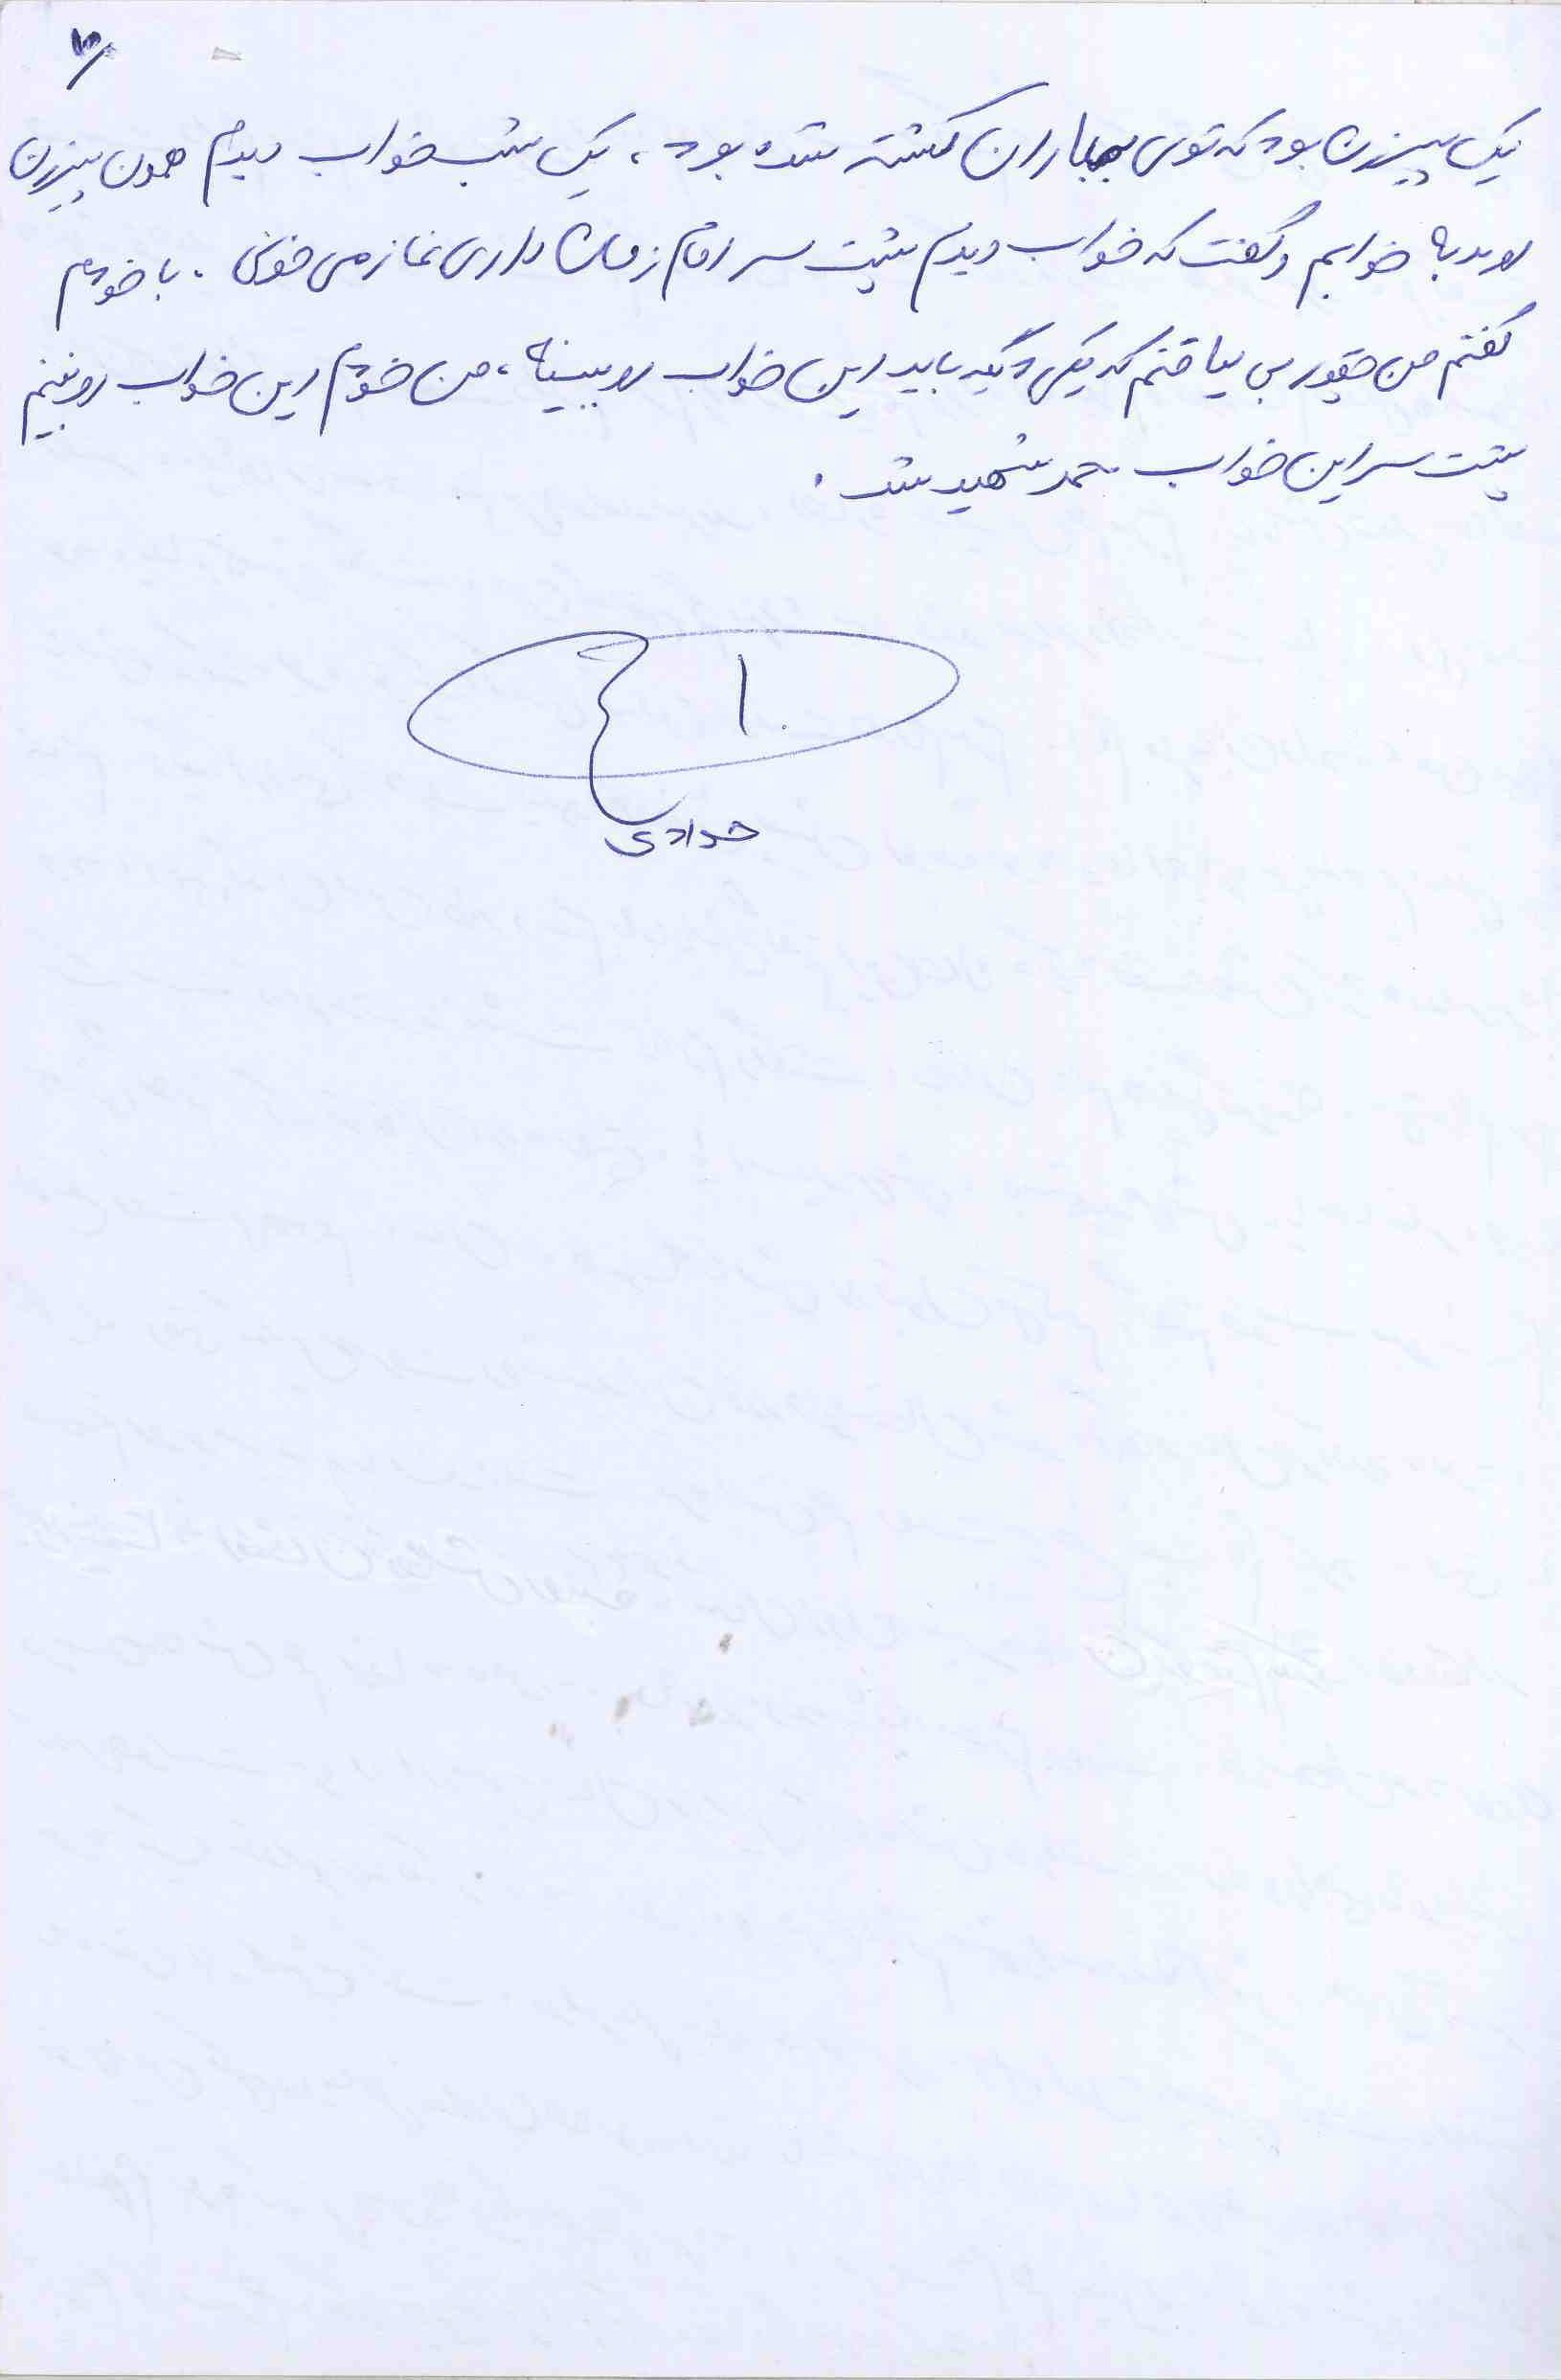 یک پیرزن بود که توی بمباران کشته شده بود، یک شب خواب دیدم همون پیرزن
اومد به خوابم و گفت که خواب دیدم پشت سر امام زمان داری نماز می خونی. با خودم
گفتم من چقدر بی لیاقتم که یکی دیگه باید این خواب رو ببینه، من خودم این خواب رو نبینم
پشت سر این خواب محمد شهید شد.
خدادادی